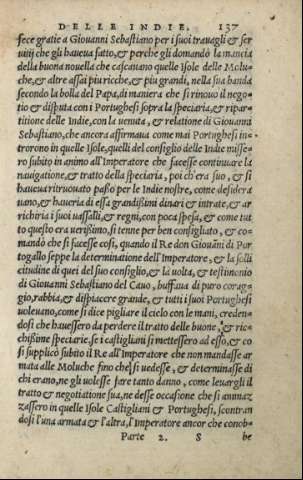 DELLE INDIE. 137
fece gratie a Giouanni Sebastiano per i suoi trauagli & ser
uitij che gli haueua fatto, & perche gli domandò la mancia
della buona nouella che cascauano quelle Isole delle Moluc
che, & altre assai piu ricche, & piu grandi, nella sua banda
secondo la bolla del Papa, di maniera che si rinouo il nego-
tio & disputa con i Portughesi sopra la speciaria, & ripar-
titione delle Indie, con la uenuta, & relatione di Giouanni
Sebastiano, che ancora affirmaua come mai Portughesi in-
trorono in quelle Isole, quelli del consiglio delle Indie misse-
ro subito in animo all'Imperatore che facesse continuare la
nauigatione, & tratto della speciaria, poi ch'era suo, & si
haueua ritruouato passo per le Indie nostre, come desidera
uano, & haueria di essa grandissimi dinari & intrate, & ar
richiria i suoi uassalli, & regni, con poca spesa, & come tut
to questo era uerissimo, si tenne per ben consigliato, & co-
mandò che si facesse così, quando il Re don Giouāni di Por
togallo seppe la determinatione dell'Imperatore, & la solli
citudine di quei del suo consiglio, & la uolta, & testimonio
di Giouanni Sebastiano del Cauo, buffaua di puro corag-
gio, rabbia, & dispiacere grande, & tutti i suoi Portughesi
uoleuano, come si dice pigliare il cielo con le mani, creden-
dosi che hauessero da perdere il tratto delle buone, & ric-
chissime spectarie, se i castigliani si mettessero ad esso, & co
sì supplicò subito il Re all'Imperatore che non mandasse ar
mata alle Moluche fino che si uedesse, & determinasse di
chi erano, ne gli uolesse fare tanto danno, come leuargli il
tratto & negotiatione sua, ne desse occasione che si amaz
zassero in quelle Isole Castigliani & Portughesi, scontran
dosi l'una armata & l'altra, l'Imperatore ancor che conob-
Parte 2. S be